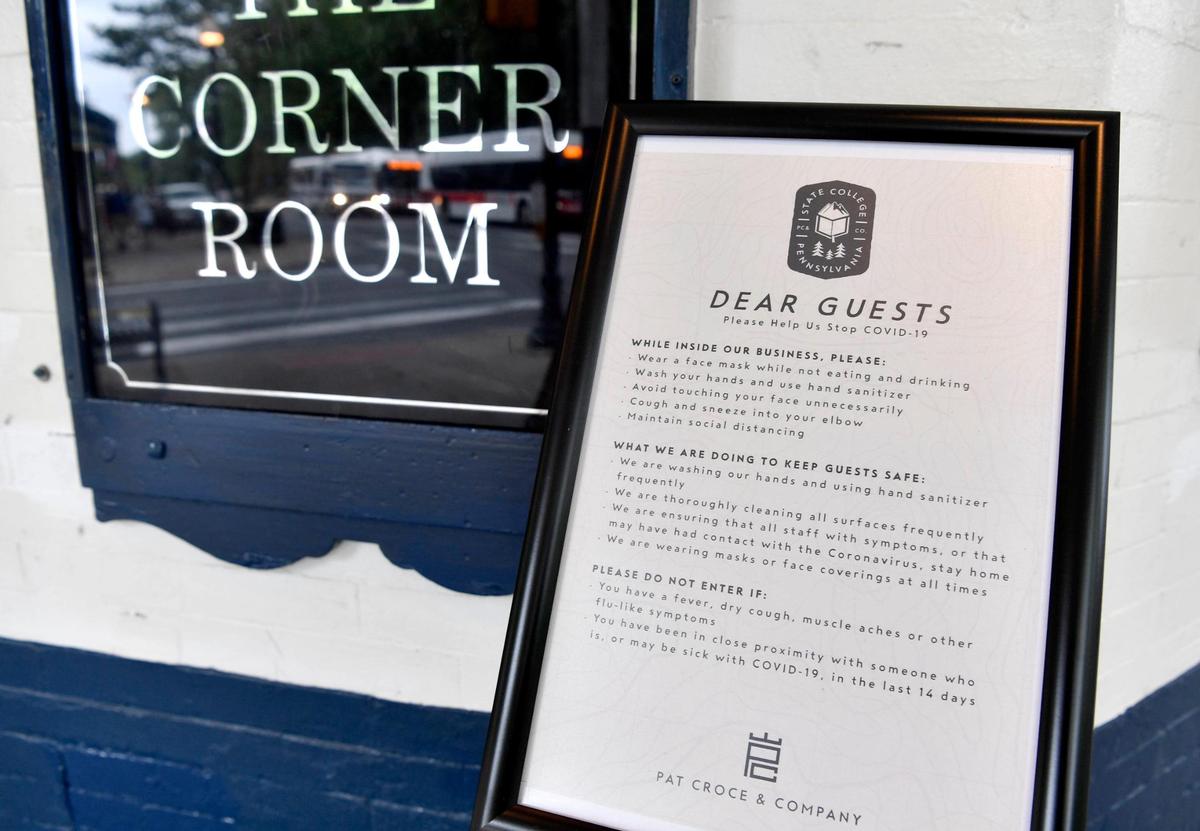 THE
CORNER
ROOM
STATE COLLEGE
PC& CO.
PENNSYLVANIA
DEAR GUESTS
Please Help Us Stop COVID-19
WHILE INSIDE OUR BUSINESS, PLEASE:
- Wear a face mask while not eating and drinking
- Wash your hands and use hand sanitizer
- Avoid touching your face unnecessarily
- Cough and sneeze into your elbow
- Maintain social distancing
WHAT WE ARE DOING TO KEEP GUESTS SAFE:
- We are washing our hands and using hand sanitizer
frequently
- We are thoroughly cleaning all surfaces frequently
- We are ensuring that all staff with symptoms, or that
may have had contact with the Coronavirus, stay home
- We are wearing masks or face coverings at all times
PLEASE DO NOT ENTER IF:
- You have a fever, dry cough, muscle aches or other
flu-like symptoms
- You have been in close proximity with someone who
is, or may be sick with COVID-19, in the last 14 days
PAT CROCE & COMPANY